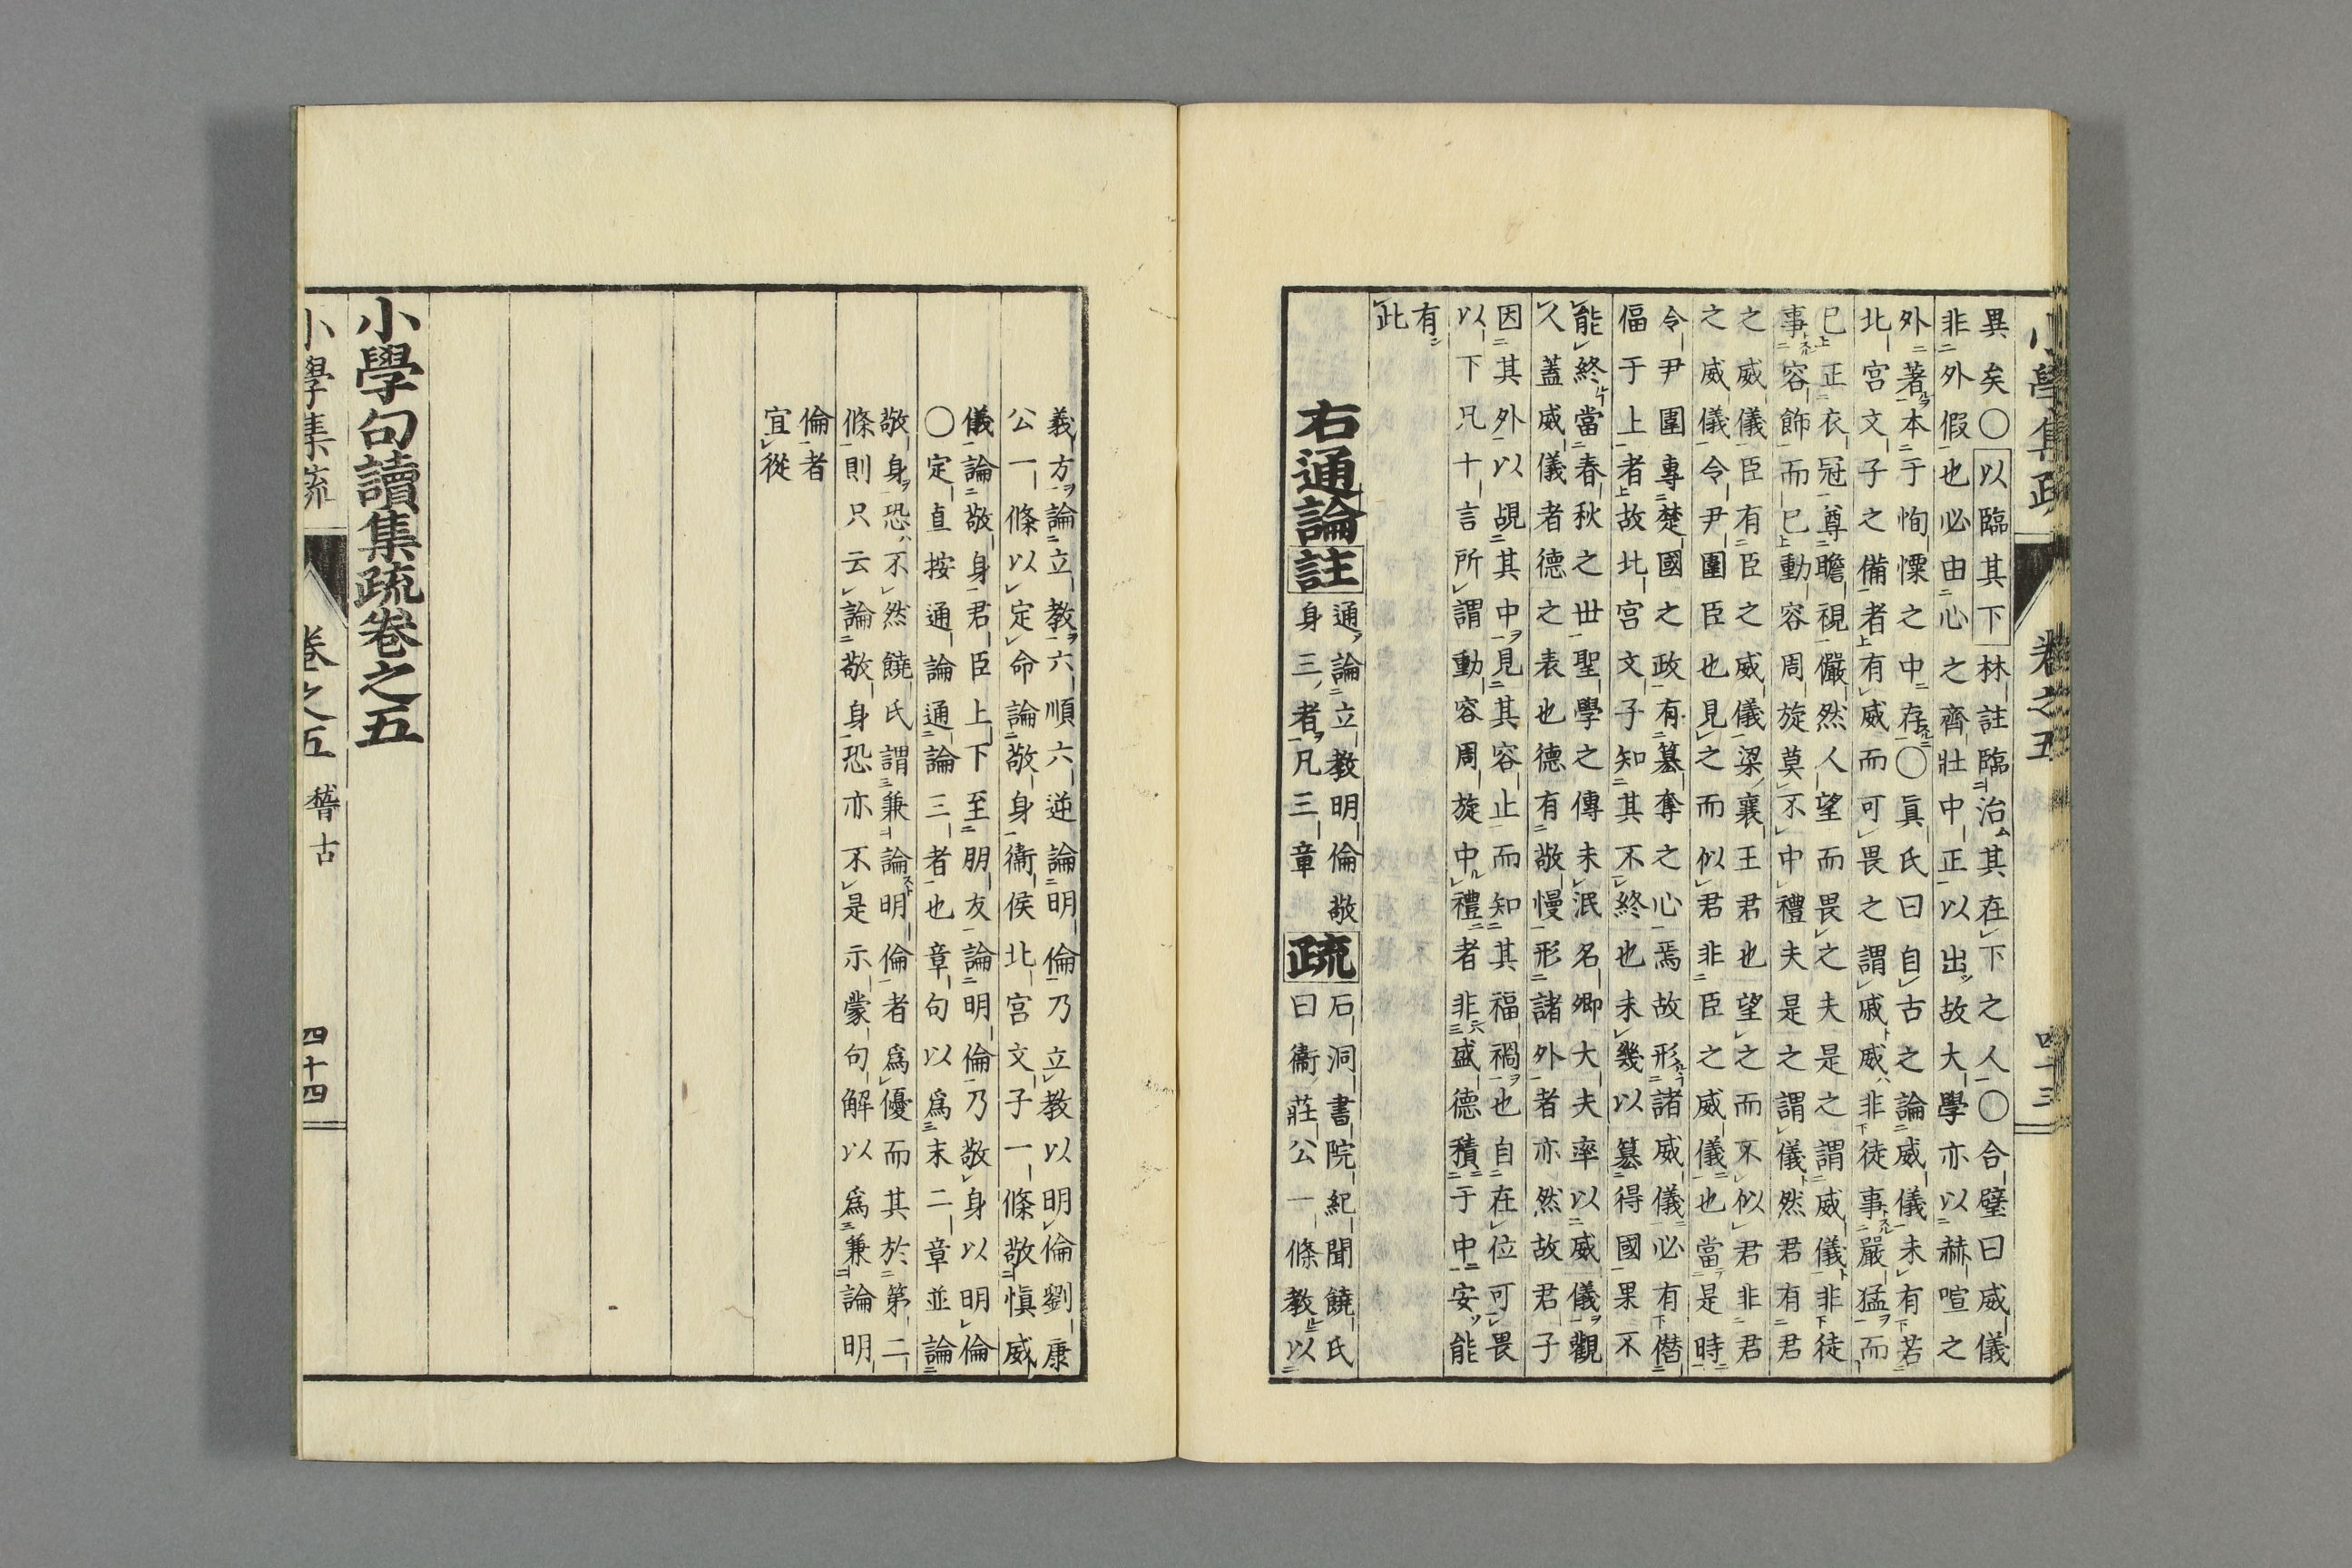 小學集疏 卷之五 四十三
異矣〇以臨其下林註臨治其在下之人〇合璧曰威儀
非外假也必由心之齊壯中正以出故大學亦以赫喧之
外著本于恂慄之中存〇眞氏曰自古之論威儀未有若
北宮文子之備者有威而可畏之謂威威非徒事嚴猛而
已正衣冠尊瞻視儼然人望而畏之夫是之謂威儀非徒
事容飾而已動容周旋莫不中禮夫是之謂儀然君有君
之威儀臣有臣之威儀梁襄王君也望之而不似君非君
之威儀令尹圍臣也見之而似君非臣之威儀也當是時
令尹圍專楚國之政有簒奪之心焉故形諸威儀必有僭
偪于上者故北宮文子知其不終也未幾以簒得國果不
能終當春秋之世聖學之傳未泯名卿大夫率以威儀觀
久蓋威儀者德之表也德有敬慢形諸外者亦然故君子
因其外以覘其中見其容止而知其福禍也自在位可畏
以下凡十言所謂動容周旋中禮者非盛德積于中安能
有
此
右通論註
通論立教明倫敬
身三者凡三章
疏
石洞書院紀聞饒氏
曰衞莊公一條教以
義方論立教六順六逆論明倫乃立教以明倫劉康
公一條以定命論敬身衞侯北宮文子一條敬愼威
儀論敬身君臣上下至朋友論明倫乃敬身以明倫
〇定直按通論通論三者也章句以爲末二章並論
敬身恐不然饒氏謂兼論明倫者爲優而其於第二
條則只云論敬身恐亦不是示蒙句解以爲兼論明
倫者
宜從
小學句讀集疏卷之五
小學集疏 卷之五 稽古 四十四